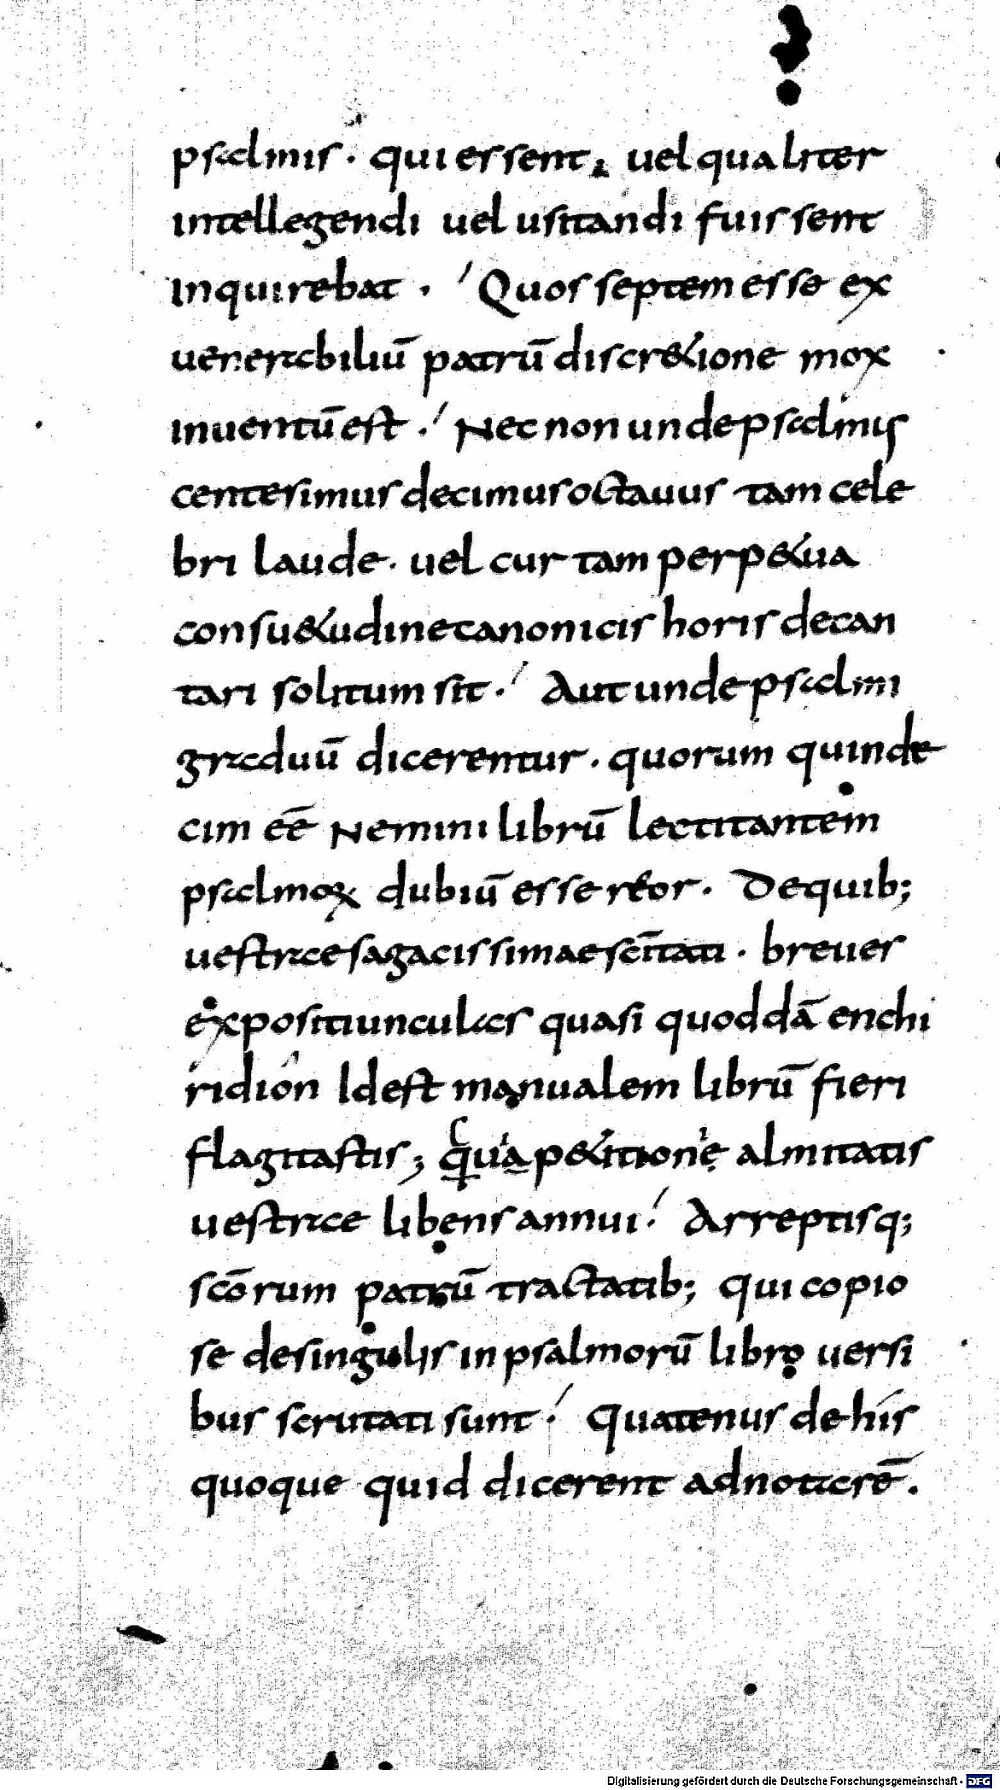 psalmis · qui essent, uel qualiter
intellegendi uel usitandi fuissent
inquirebat · Quos septem esse ex
uenerabiliū patrū discr&ione mox
inuentū est · Nec non unde psalmus
centesimus decimus octauus tam cele
bri laude · uel cur tam perp&ua
consu&udine canonicis horis decan
tari solitum sit · Aut unde psalmi
graduū dicerentur · quorum quinde
cim eē Nemini librū lectitantem
psalmoꝝ dubiū esse reor · De quib;
uestrae sagacissimae sc̄itati · breues
expositiunculas quasi quoddā enchi
ridion Id est manualem librū fieri
flagitastis; p&itione almitatis
uestrae libens annui · Arreptisq;
scōrum patrū tractatib; qui copio
se de singulis in psalmorū libro uersi
bus scrutati sunt · Quatenus de his
quoque quid dicerent adnotarē ·
Digitalisierung gefördert durch die Deutsche Forschungsgemeinschaft - DFG